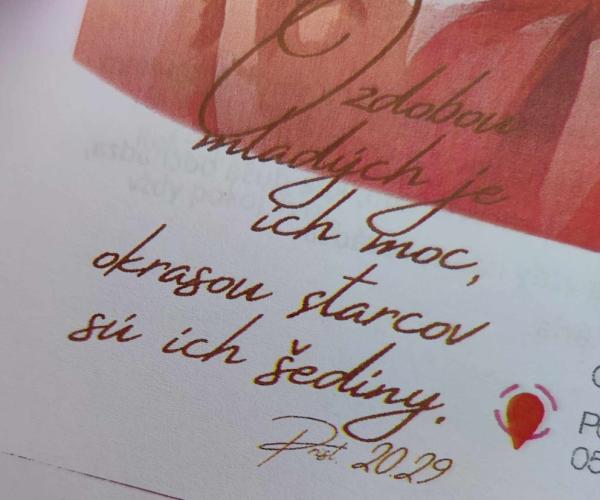 Ozdobou
mladých je
ich moc,
okrasou starcov
sú ich šediny.
Prísl. 20.29
05